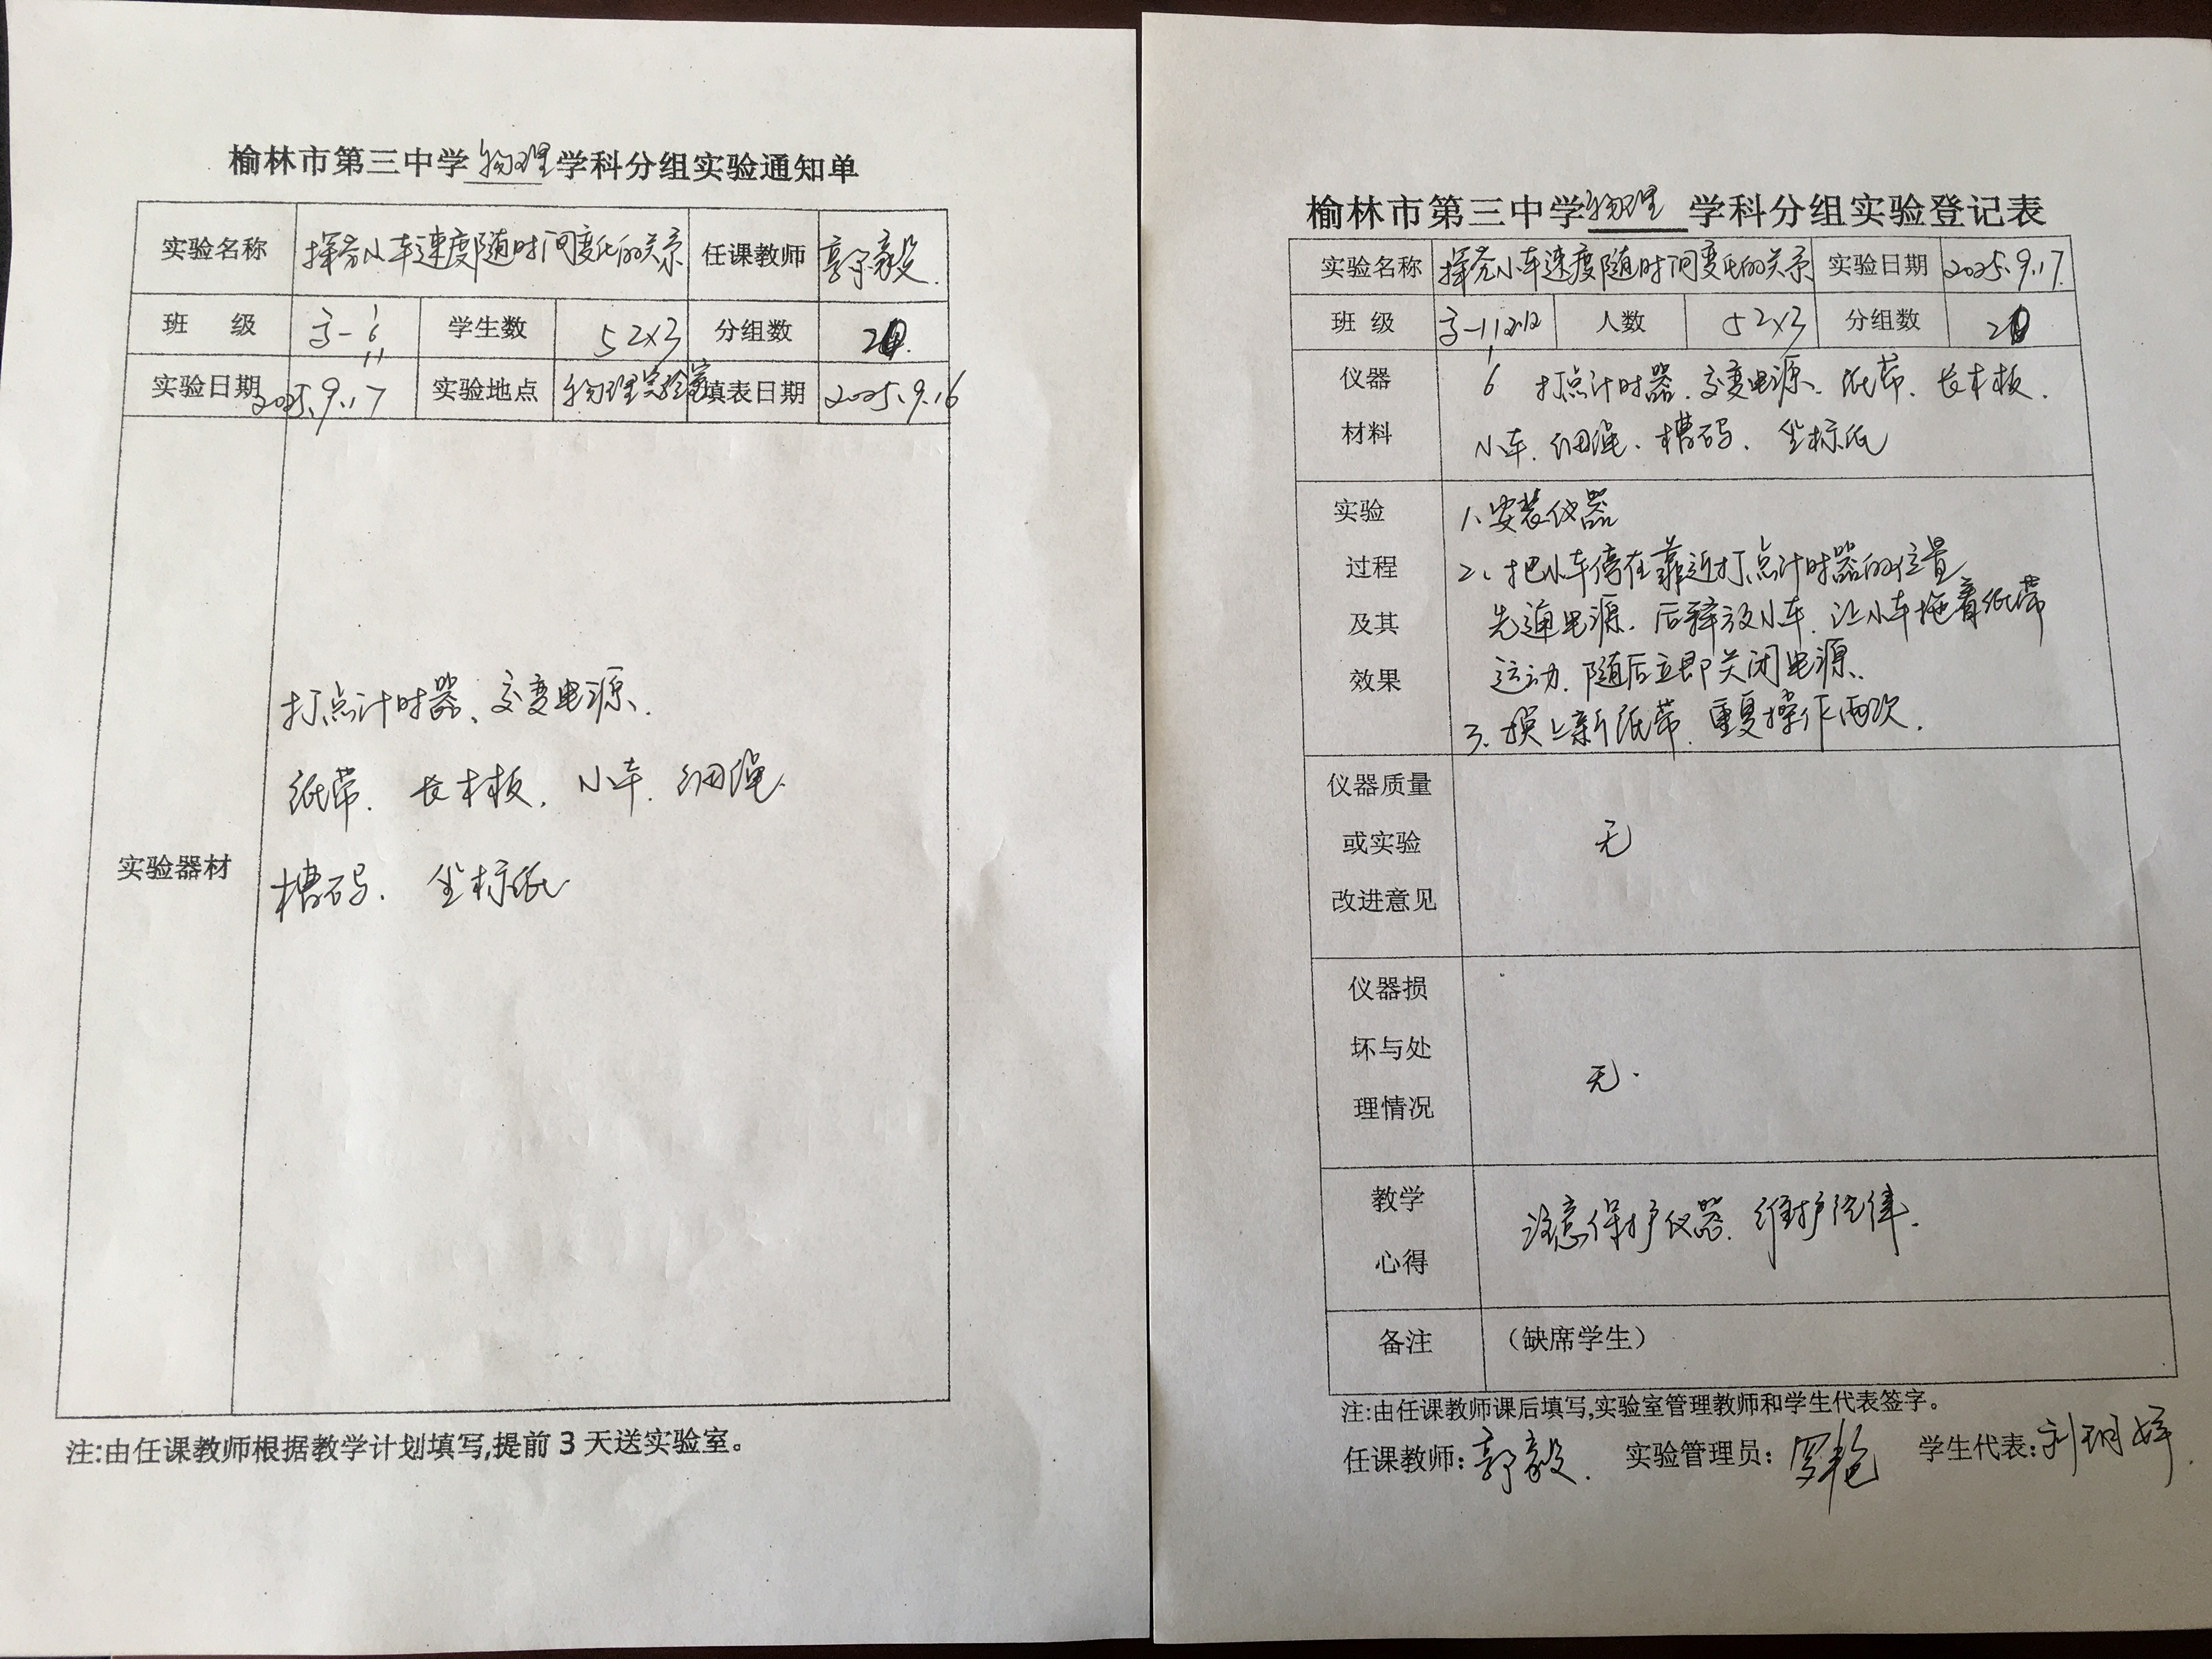 榆林市第三中学物理学科分组实验通知单
实验名称 探究小车速度随时间变化的关系 任课教师 郭毅
班 级 高一 6 11 学生数 52×3 分组数
实验日期 2025.9.17 实验地点 物理实验室 填表日期 2025.9.16
实验器材
打点计时器、交变电源、
纸带、长木板、小车、细绳
槽码、坐标纸
注:由任课教师根据教学计划填写,提前3天送实验室。
榆林市第三中学物理学科分组实验登记表
实验名称 探究小车速度随时间变化的关系 实验日期 2025.9.17
班 级 高一 人数 52×3 分组数
仪器 6 打点计时器、交变电源、纸带、长木板、
材料 小车、细绳、槽码、坐标纸
实验 1、安装仪器
过程 2、把小车停在靠近打点计时器的位置
及其 先通电源、后释放小车、让小车拖着纸带
效果 运动、随后立即关闭电源、
3、换上新纸带、重复操作两次、
仪器质量
或实验 无
改进意见
仪器损
坏与处 无.
理情况
教学 注意保护仪器、维护纪律.
心得
备注 (缺席学生)
注:由任课教师课后填写,实验室管理教师和学生代表签字。
任课教师: 郭毅. 实验管理员: 罗艳 学生代表: 刘